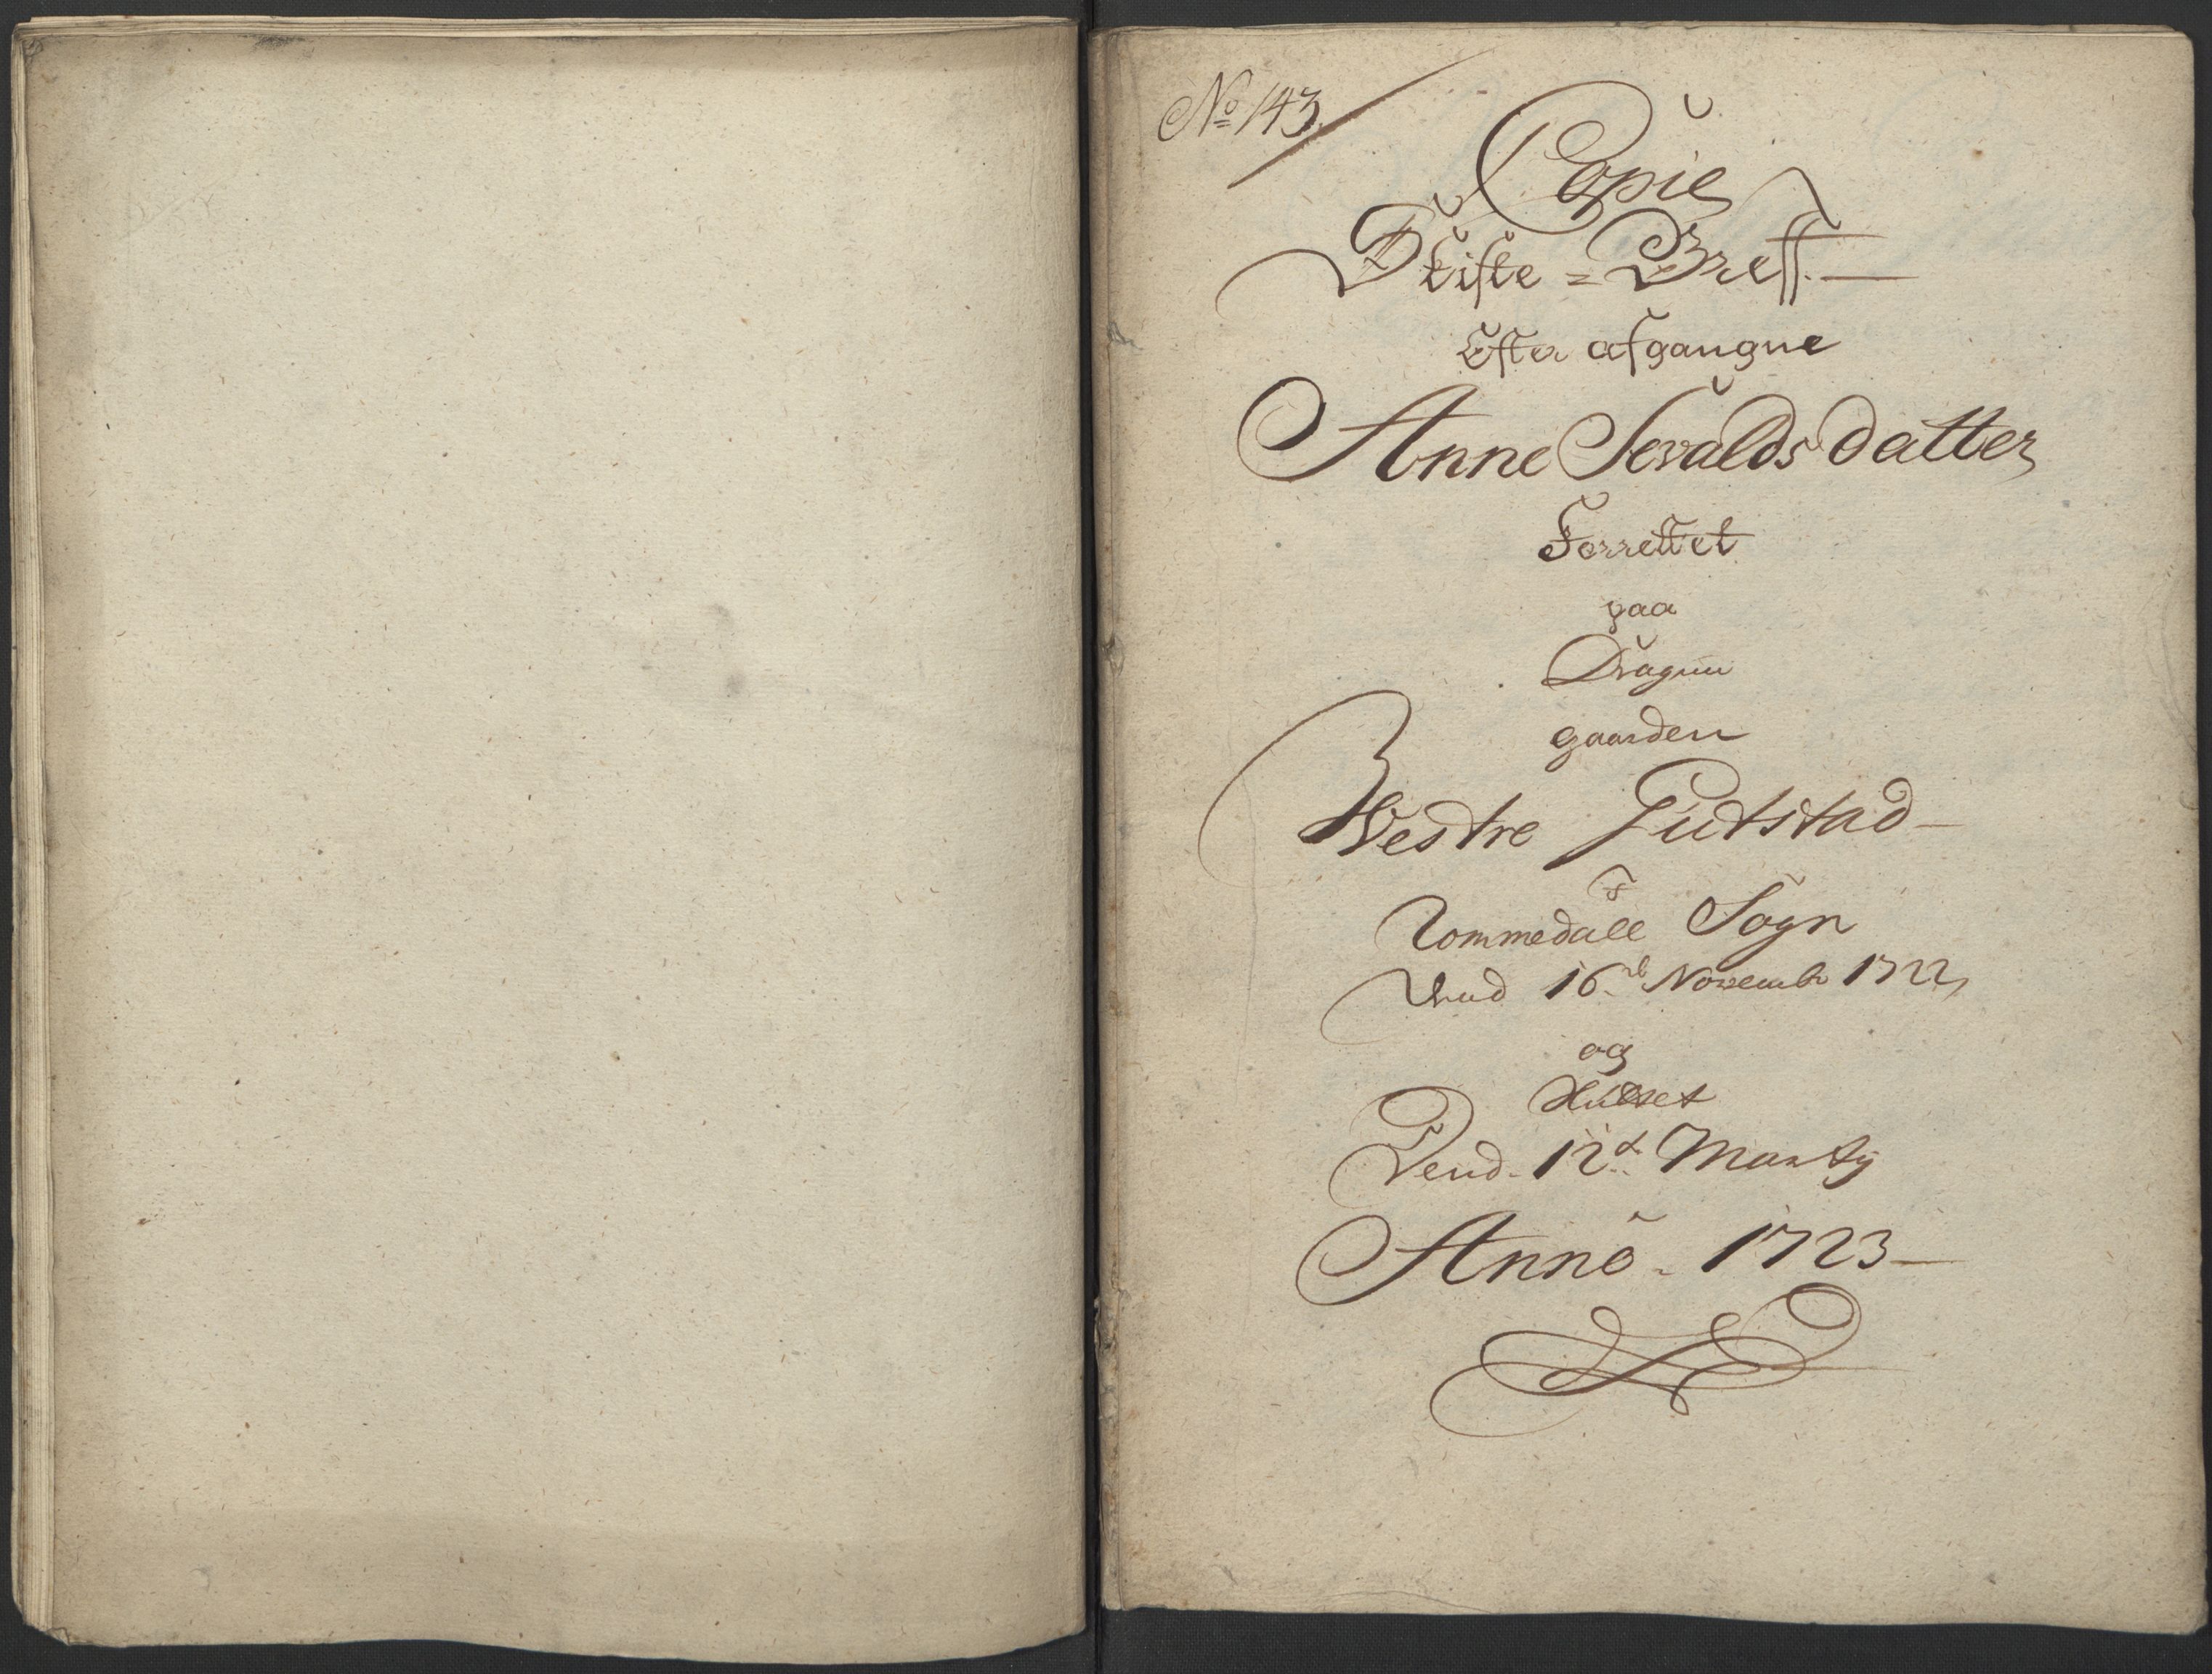 No 143.
Copie
Skifte = Breff.
Efter afgangne
Anne Sevaldsdatter
Forrettet
paa
Dragun
gaarden
Westre Gutstad
i
Rommedall Sogn
Dend 16de Novembr 1722,
og
Sluttet
Dend 12te Marty
Anno 1723